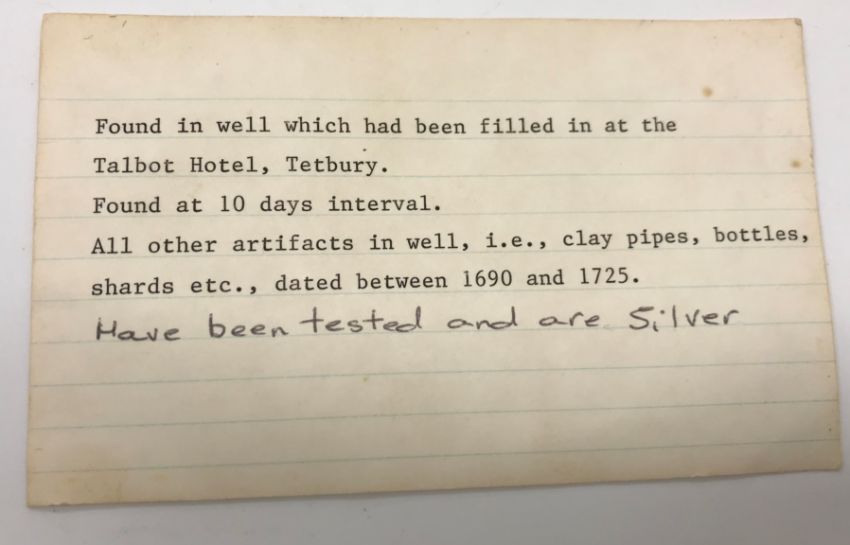 Found in well which had been filled in at the
Talbot Hotel, Tetbury.
Found at 10 days interval.
All other artifacts in well, i.e., clay pipes, bottles,
shards etc., dated between 1690 and 1725.
Have been tested and are Silver